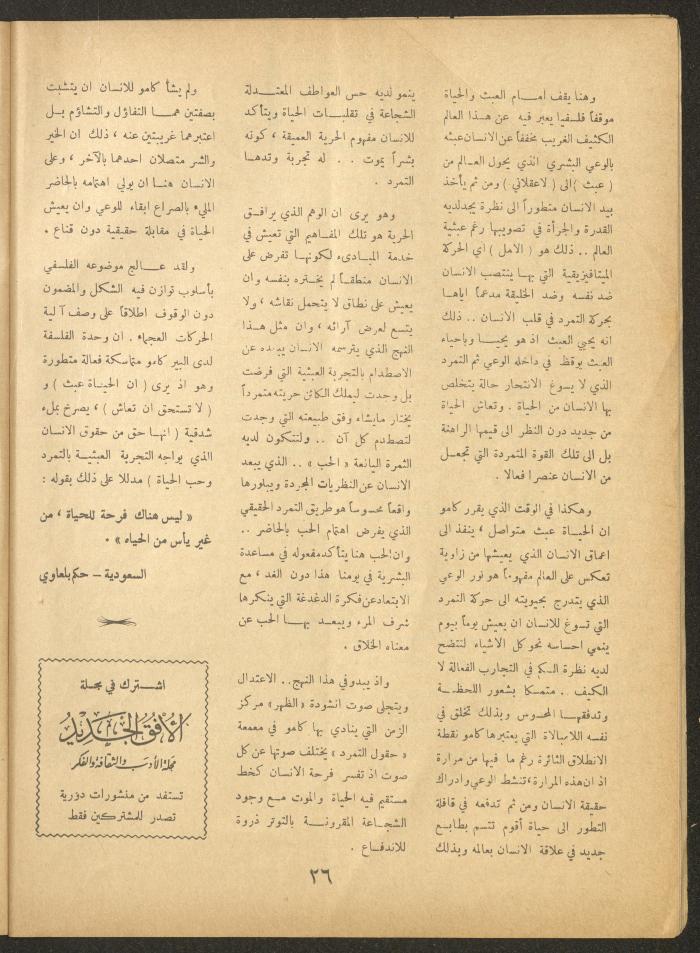 وهنا يقف امام العبث والحياة
موقفاً فلسفيا يعبر فيه عن هذا العالم
الكثيف الغريب مخففاً عن الانسان عبثه
بالوعي البشري الذي يحول العالم من
( عبث ) الى ( لاعقلاني ) ومن ثم يأخذ
بيد الانسان متطوراً الى نظرة يجد لديه
القدرة والجرأة في تصويبها رغم عبثية
العالم .. ذلك هو ( الامل ) اي الحركة
الميتافيزيقية التي بها ينتصب الانسان
ضد نفسه وضد الخليقة مدعماً اياها
بحركة التمرد في قلب الانسان .. ذلك
انه يحيي العبث اذ هو يحيا وباحياء
العبث يوقظ في داخله الوعي ثم التمرد
الذي لا يسوغ الانتحار حالة يتخلص
بها الانسان من الحياة . وتعاش الحياة
من جديد دون النظر الى قيمها الراهنة
بل الى تلك القوة المتمردة التي تجعل
من الانسان عنصرا فعالا .
وهكذا في الوقت الذي يقرر كامو
ان الحياة عبث متواصل ، ينفذ الى
اعماق الانسان الذي يعيشها من زاوية
تعكس على العالم مفهوماً هو نور الوعي
الذي يتدرج بحيويته الى حركة التمرد
التي تسوغ للانسان ان يعيش يوماً بيوم
ينمي احساسه نحو كل الاشياء لتتضح
لديه نظرة الكم في التجارب الفعالة لا
الكيف .. متمسكا بشعور اللحظة
وتدفقها المحسوس وبذلك تخلق في
نفسه اللامبالاة التي يعتبرها كامو نقطة
الانطلاق الثائرة رغم ما فيها من مرارة
اذ ان هذه المرارة ، تنشط الوعي وادراك
حقيقة الانسان ومن ثم تدفعه في قافلة
التطور الى حياة أقوم تتسم بطابع
جديد في علاقة الانسان بعالمه وبذلك
ينمو لديه حس العواطف المعتدلة
الشجاعة في تقلبات الحياة ويتأكد
للانسان مفهوم الحرية العميقة ، كونه
بشراً يموت . . له تجربة وتدها
التمرد .
وهو يرى ان الوهم الذي يرافق
الحرية هو تلك المفاهيم التي تعيش في
خدمة المبادىء لكونها تفرض على
الانسان منطقاً لم يختره بنفسه وان
يعيش على نطاق لا يتحمل نقاشه ، ولا
يتسع لعرض آرائه ، وان مثل هذا
النهج الذي يترسمه الانسان يبعده عن
الاصطدام بالتجربة العبثية التي فرضت
بل وجدت ليملك الكائن حريته متمرداً
يختار مايشاء وفق طبيعته التي وجدت
لتصطدم كل آن .. ولتتكون لديه
الثمرة اليانعة « الحب » .. الذي يبعد
الانسان عن النظريات المجردة ويبلورها
واقعاً محسوساً هو طريق التمرد الحقيقي
الذي يفرض اهتمام الحب بالحاضر ..
وان الحب هنا يتأكد مفعوله في مساعدة
البشرية في يومنا هذا دون الغد ، مع
الابتعاد عن فكرة الدغدغة التي ينكرها
شرف المرء ويبعد بها الحب عن
معناه الخلاق .
واذ يبدو في هذا النهج .. الاعتدال
ويتجلى صوت انشودة « الظهر » مركز
الزمن التي ينادي بها كامو في معمعة
« حقول التمرد » يختلف صوتها عن كل
صوت اذ تفسر فرحة الانسان كخط
مستقيم فيه الحياة والموت مع وجود
الشجاعة المقرونة بالتوتر ذروة
للاندفاع .
ولم يشأ كامو للانسان ان يتشبث
بصفتين هما التفاؤل والتشاؤم بل
اعتبرهما غريبتين عنه ، ذلك ان الخير
والشر متصلان احدهما بالآخر ، وعلى
الانسان هنا ان يولي اهتمامه بالحاضر
المليء بالصراع ابقاء للوعي وان يعيش
الحياة في مقابلة حقيقية دون قناع .
ولقد عالج موضوعه الفلسفي
بأسلوب توازن فيه الشكل والمضمون
دون الوقوف اطلاقاً على وصف آلية
الحركات العجماء . ان وحدة الفلسفة
لدى البير كامو متماسكة فعالة متطورة
وهو اذ يرى ( ان الحياة عبث ) و
( لا تستحق ان تعاش ) ، يصرخ بملء
شدقية ( انها حق من حقوق الانسان
الذي يواجه التجربة العبثية بالتمرد
وحب الحياة ) مدللا على ذلك بقوله :
« ليس هناك فرحة للحياة ، من
غير يأس من الحياه » .
السعودية – حكم بلعاوي
اشترك في مجلة
الأفق الجديد
مجلة الأدب والثقافة والفكر
تستفد من منشورات دورية
تصدر للمشتركين فقط
٢٦